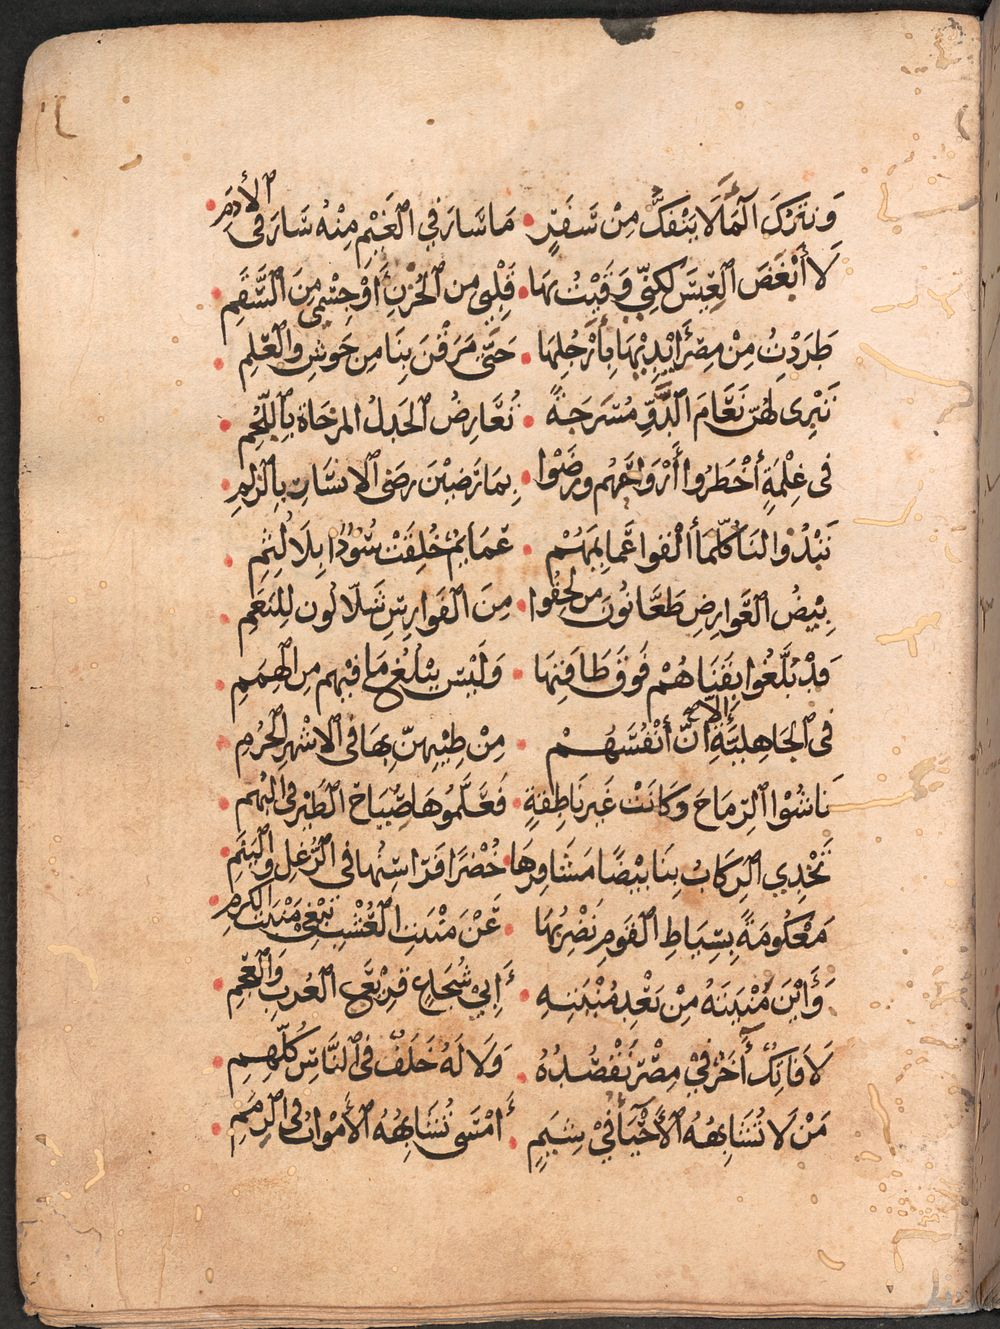 وَنَتْرُكُ المَآءَ لَا يَنْفَكُّ مِنْ سَفَرٍ • مَا سَارَ فِي الغَيْمِ مِنْهُ سَارَ فِي الأَدَمِ
لَا أُبْغِضُ العِيسَ لَكِنِّي وَقَيْتُ بِهَا • قَلْبِي مِن الحُزْنِ أَوْ جِسْمِي مِنَ السَّقَمِ
طَرَدْتُ مِنْ مِصْرَ أَيْدِيْهَا بِأَرْجُلِهَا • حَتَّى مَرَقْنَ بِنَا مِن جَوشِ وَالعَلَمِ
تَبْرِى لَهُنّ نَعَّام الدَّوِّ مُسْرَجَةً • تُعَارِضُ الجَدلُ المرْخَاة بِاللّجُمِ
فى غِلْمَةٍ أَخْطَرُوا أَرْوَاحَهُم ورَضَوْا • بِمَا رَضِيْنَ رضَى الايسَّارِ بِالزَلَمِ
تَبْدُوا لنَا كُلّمَا أَلْقوا عَمَايِمَهُمْ • عَمَايِمٌ خُلِقَتْ سُودًا بِلَا لُثُمِ
بِيْضُ العَوارِضِ طَعَّانُونَ مَن لَحِقُوا • مِنَ الفَوارِسِ شَلّالُون لِلنَعَمِ
قَدْ بَلَّغُوا بِقَنَاهُمْ فَوْقَ طَاقَتِهَا • وَلَيْسَ يَبْلُغُ مَا فِيْهِم مِن الهِمَمِ
فى الجَاهِليَّةِ إِلَّا أَنَّ أَنْفُسَهُمْ • مِنْ طِيْبِهِنّ بِهَا فى الاشْهُرِ الحُرُمِ
نَاشُوْا الرِّمَاحَ وَكَانَتْ غَيرَ نَاطِقةٍ • فعَلَّمُوهَا صِيَاحَ الطَيْرِ فى البُهَمِ
تَخْدِي الرِكَابُ بِنَا بِيْضًا مَشَافِرُهَا • خُضْرًا فَرَاسِنُها فى الرُغلِ والْيَنَمِ
مَعْكُومَةً بِسِيَاطِ القَومِ نَضْرِبُهَا • عَنْ مَنْبَتِ العُشْبِ نَبْغِى مَنْبَتَ الكَرمِ
وَأَيْنَ مَنْبَتهُ مِنْ بَعْدِ مَنْبَتِهِ • أَبِي شُجَاعٍ قَرِيْعِ العُربِ وَالعَجَمِ
لَا فَاتِكٌ آخَرٌ فِيْ مِصْرَ نَقْصُدُهُ • وَلَا لَهُ خَلَفٌ فى النَّاسِ كُلّهِمِ
مَنْ لَا تُشَابِهُهُ الأَحْيَآ فِيْ شِيَمٍ • أَمْسَى تُشَابِهُهُ الأَمْوَاتُ فى الرِمَمِ